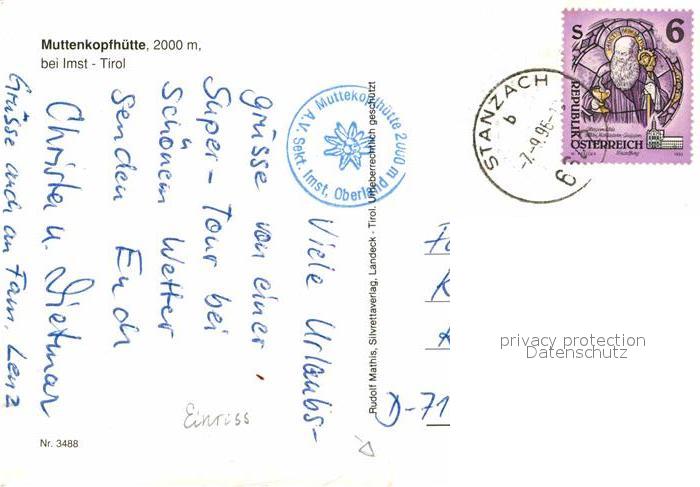 Muttenkopfhütte, 2000 m,
bei Imst - Tirol
Muttekopfhütte 2000 m
A.V. Sekt. Imst, Oberland
STANZACH
b
-7.-9.96-
S 6
REPUBLIK
ÖSTERREICH
Viele Urlaubs-
grüsse von einer
Super-Tour bei
schönem Wetter
senden Euch
Christa u. Dietmar
Grüsse auch an Fam. Lenz
Rudolf Mathis, Silvrettaverlag, Landeck - Tirol. Urheberrechtlich geschützt
D-71
privacy protection
Datenschutz
Einriss
Nr. 3488